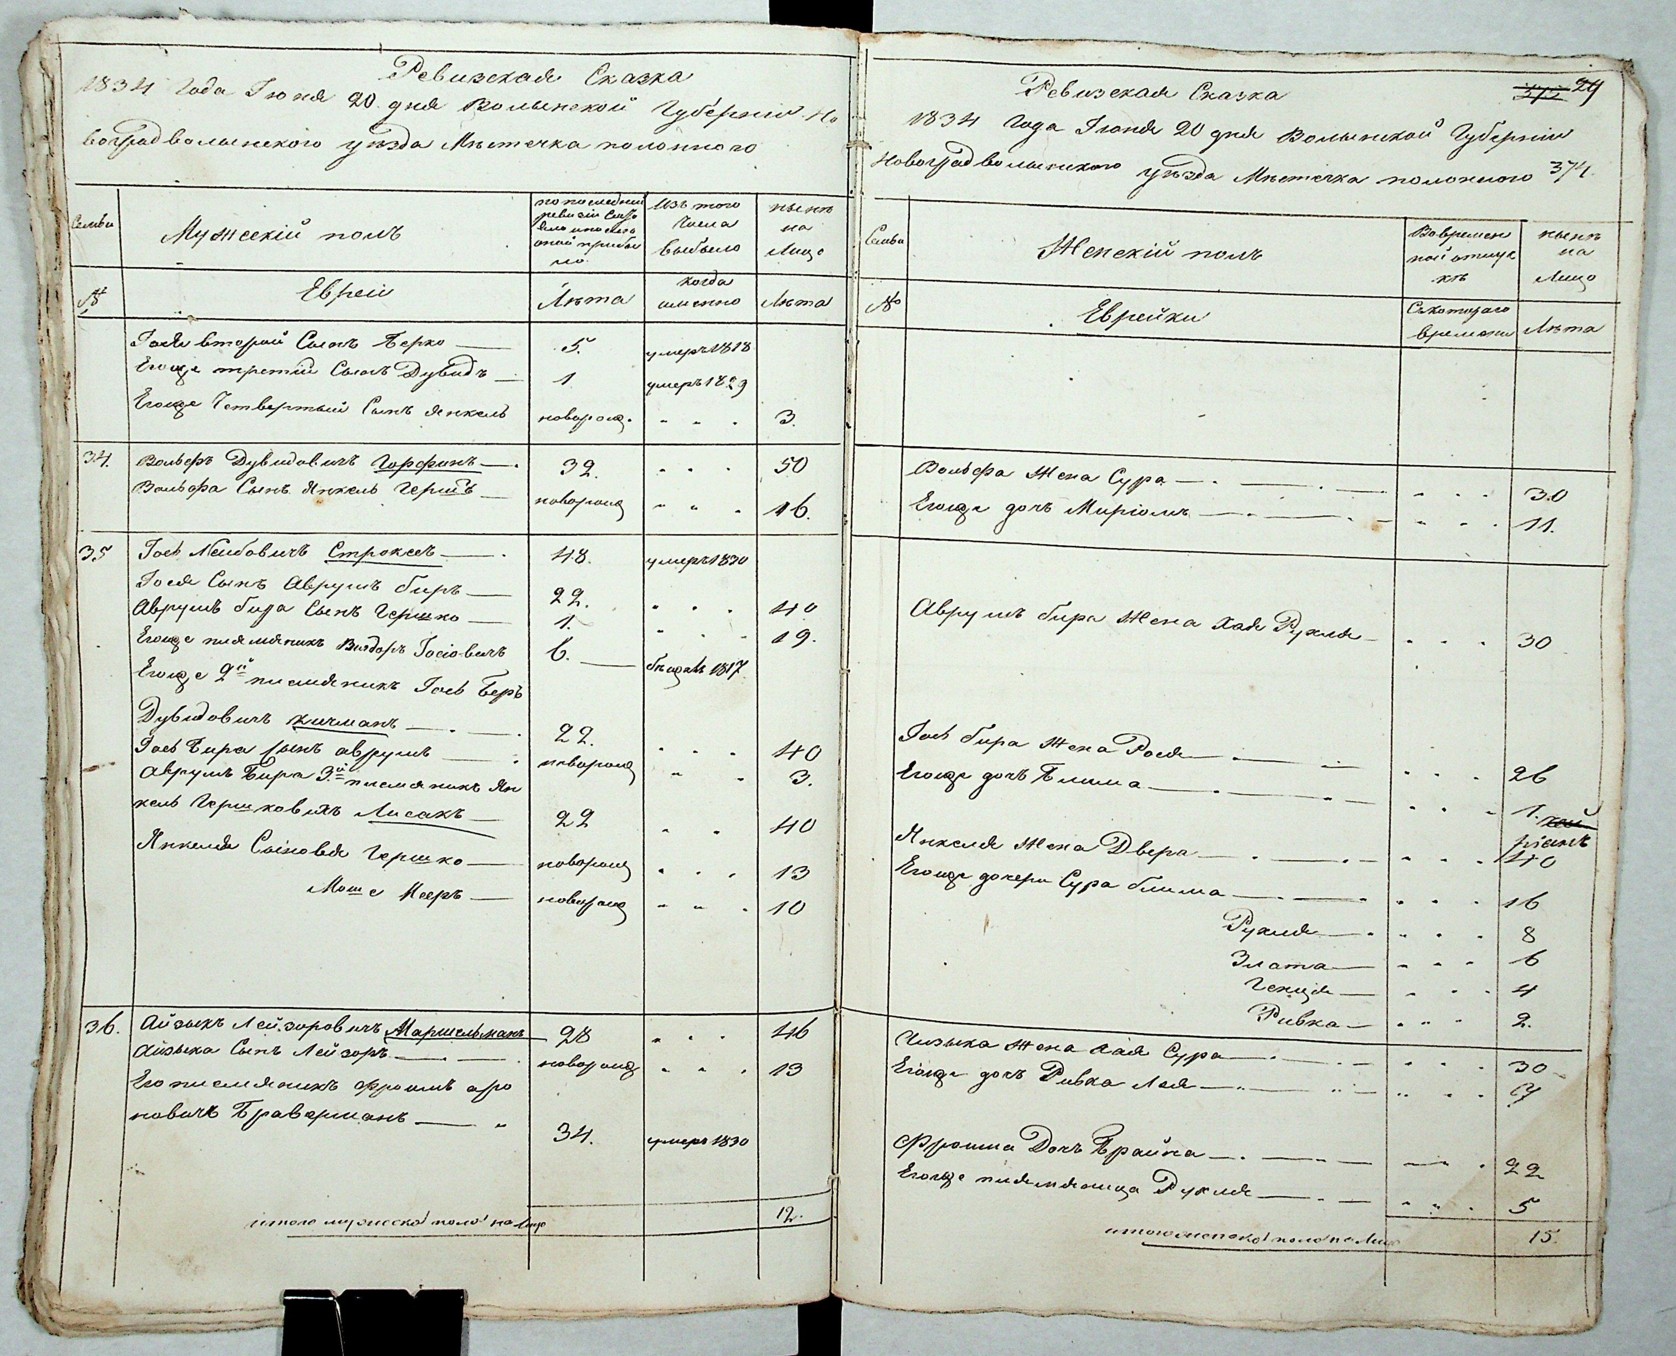 Ревизская Сказка
1834 Года Июня 20 дня Волынской Губернии Но
воградволынского уезда Местечка полонного
Семьи
Мужескій полъ
по последней
ревизіи
Изъ того
числа
выбыло
ныне
на
Лицо
№
Евреи
Лѣта
когда
именно
Лѣта
Іося второй Сынъ Берко 5. умеръ 1818
Егоже третій Сынъ Дувидъ 1 умеръ 1829
Егоже Четвертый Сынъ Янкель новорожд. 3.
34. Вольфъ Дувидовичъ Горфинъ 32. 50
Вольфа Сынъ Янкель Гершъ новорожд 16.
35 Іось Лейбовичъ Строксъ 48. умеръ 1830
Іося Сынъ Аврумъ биръ 22. 40
Аврумъ бира Сынъ Гершко 1. 19.
Егоже племяникъ Іосіовичъ 6. 1817
Егоже 2й племяникъ Іось Беръ
Дувидовичъ Кичманъ 22. 40
Іось Бира сынъ аврумъ новорожд 3.
Аврумъ Бира 3й племяникъ Ян
кель Гершковичъ Лисакъ 22 40
Янкеля Сыновья Гершко новорожд 13
Моше Мееръ новорожд 10
36. Айзыкъ Лейзоровичъ Маршельманъ 28 46
Айзыка Сынъ Лейзоръ новорожд 13
Его племяникъ Фроимъ аро
новичъ Браверманъ 34. умеръ 1830
итого мужеска пола на лицо 12.
Ревизская Сказка
29
1834 Года Іюня 20 дня Волынской Губерніи
Новоградволынского уѣзда Местечка полонного 374.
Семьи
Женскій полъ
Во времен
ной отлуч
кѣ
нынѣ
на
Лицо
№
Еврейки
Съ котораго
времени
Лѣта
Вольфа Жена Сура 30
Егоже дочь Миріомъ 11.
Аврумъ бира Жена Хая Рухля 30
Іось бира Жена Рося 26
Егоже дочь Блима 1.
Янкеля Жена Двера 40
Егоже дочери Сура блима 16
Рухля 8
Злата 6
Генця 4
Ривка 2.
Айзыка Жена Хая Сура 30
Егоже дочь Ривка Лея
Фроима Дочь Брайна 22
Егоже племяница Рухля 5
итого женска пола на лицо 15.